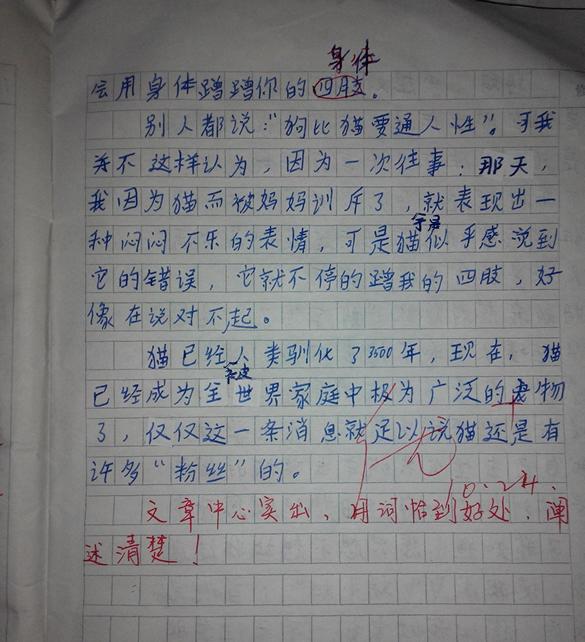 身体
会用身体蹭蹭你的四肢。
别人都说:"狗比猫要通人性"。可我
并不这样认为,因为一次往事:那天,
我因为猫而被妈妈训斥了,就表现出一
种闷闷不乐的表情,可是猫似乎感觉到
它的错误,它就不停的蹭我的四肢,好
像在说对不起。
猫已经人类驯化了3500年,现在,猫
已经成为全世界家庭中极为广泛的宠物
了,仅仅这一条消息就足以说猫还是有
许多"粉丝"的。
10.24.
文章中心突出,用词恰到好处,阐
述清楚!